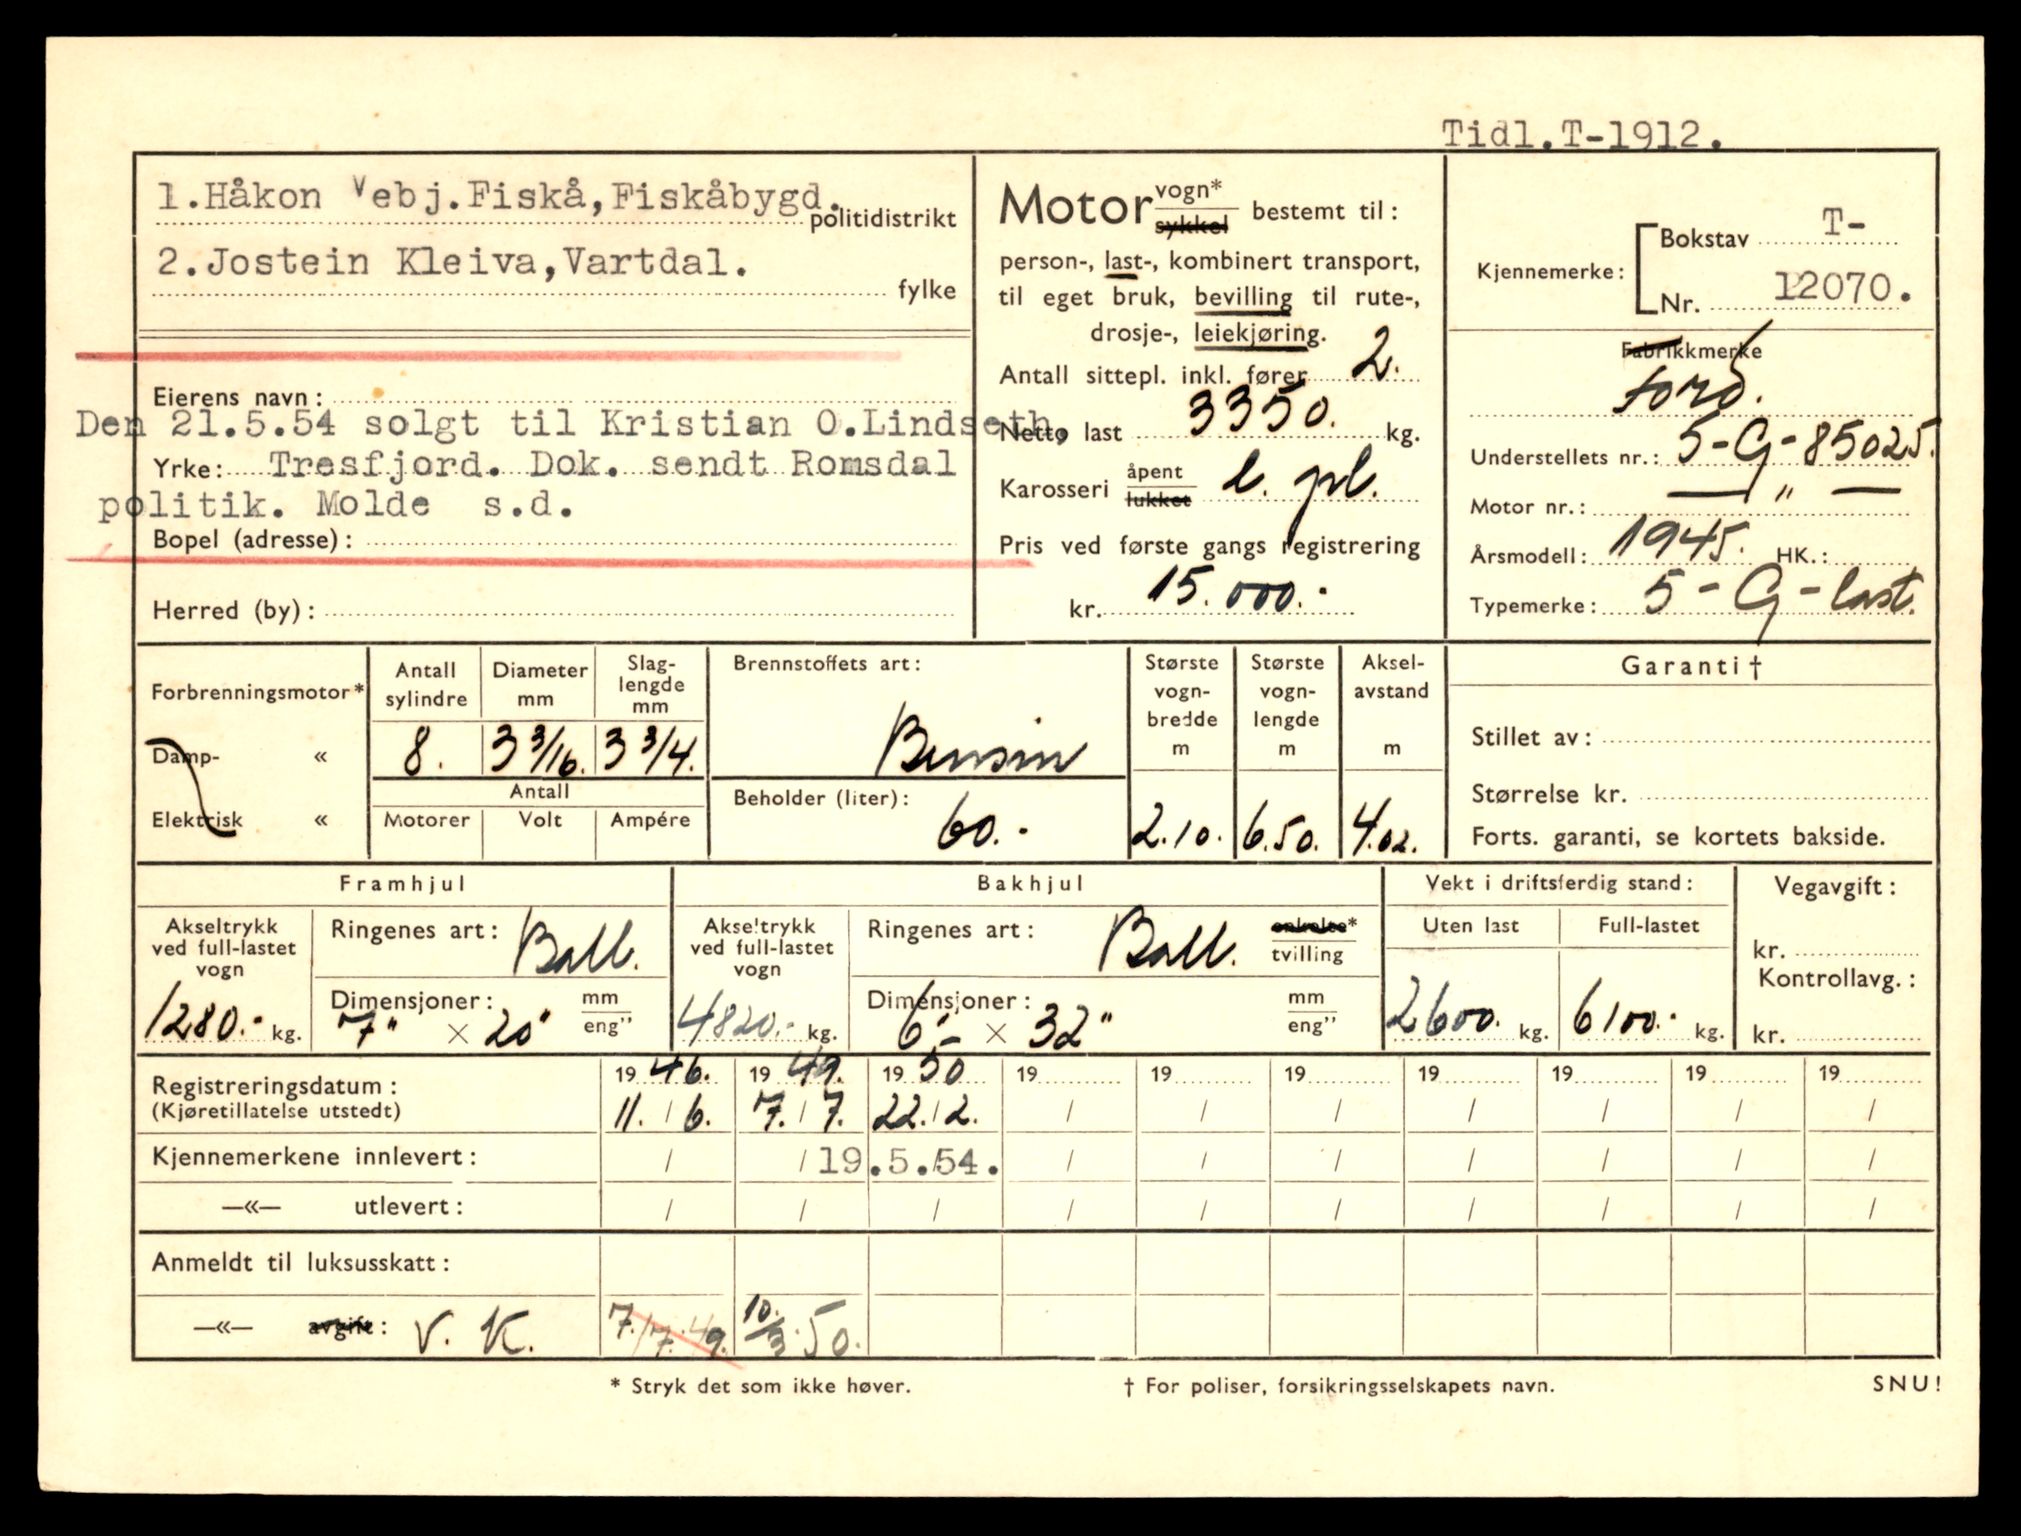 Tidl.T-1912.
1.Håkon Vebj.Fiskå,Fiskåbygd.
politidistrikt
2.Jostein Kleiva,Vartdal.
fylke
Eierens navn:
Den 21.5.54 solgt til Kristian O.Lindseth,
Yrke: Tresfjord. Dok. sendt Romsdal
politik. Molde s.d.
Bopel (adresse):
Herred (by):
Motor vogn* sykkel bestemt til:
person-, last-, kombinert transport,
til eget bruk, bevilling til rute-,
drosje-, leiekjøring.
Antall sittepl. inkl. fører 2.
Netto last 3350. kg.
Karosseri åpent lukket l. pl.
Pris ved første gangs registrering
kr. 15.000.-
Kjennemerke: Bokstav T-
Nr. 12070.
Fabrikkmerke
Ford.
Understellets nr.: 5-G-85025.
Motor nr.: — " —
Årsmodell: 1945. HK.:
Typemerke: 5-G-last.
Forbrenningsmotor*
Damp- «
Elektrisk «
Antall sylindre
8.
Diameter mm
3 3/16.
Slag- lengde mm
3 3/4.
Antall
Motorer Volt Ampére
Brennstoffets art:
Bensin
Beholder (liter):
60.-
Største vogn- bredde m
2.10.
Største vogn- lengde m
6.50.
Aksel- avstand m
4.02.
Garanti †
Stillet av:
Størrelse kr.
Forts. garanti, se kortets bakside.
Framhjul
Akseltrykk ved full-lastet vogn
1280.- kg.
Ringenes art: Ball.
Dimensjoner: mm eng"
7" × 20"
Bakhjul
Akseltrykk ved full-lastet vogn
4820.- kg.
Ringenes art: Ball. enkelte* tvilling
Dimensjoner: mm eng"
6" × 32"
Vekt i driftsferdig stand:
Uten last Full-lastet
2600. kg. 6100.- kg.
Vegavgift:
kr.
Kontrollavg.:
kr.
Registreringsdatum: 19 46. 19 49. 19 50 19 19 19 19 19 19 19
(Kjøretillatelse utstedt) 11. / 6. 7. / 7. 22. / 2. / / / / / / /
Kjennemerkene innlevert: / / 19.5.54. / / / / / / /
—«— utlevert: / / / / / / / / / /
Anmeldt til luksusskatt:
—«— avgift: V. K. 7./7.49. 10./3.50.
* Stryk det som ikke høver.
† For poliser, forsikringsselskapets navn.
SNU!